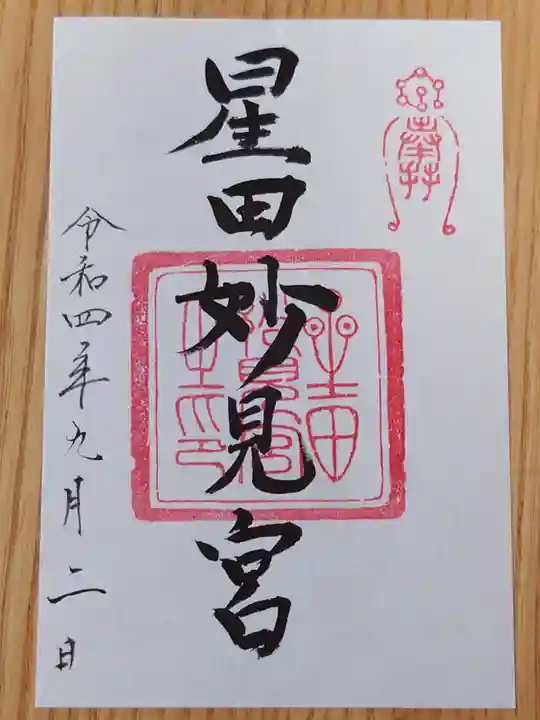 星田妙見宮
令和四年九月二日